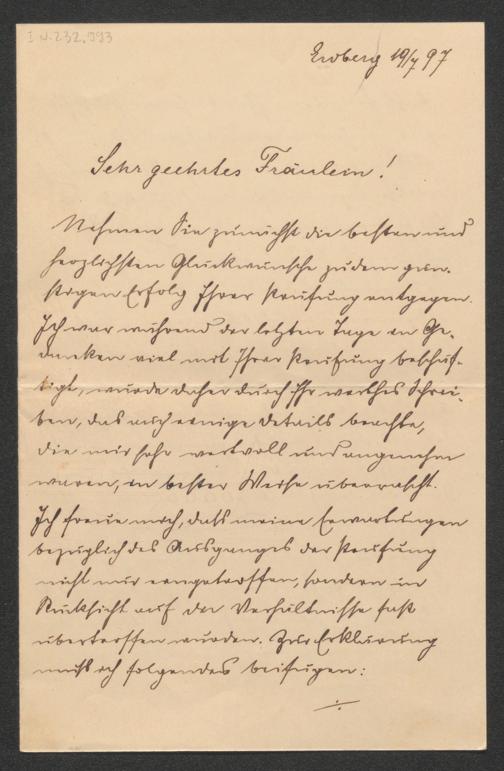 I.N. 232.993
19/7 97
Sehr geehrtes Fräulein!
Nehmen Sie zunächst die besten und
herzlichsten Glückwünsche zu dem gün-
stigen Erfolg Ihrer Prüfung entgegen.
Ich war während der letzten Tage in Ge-
danken viel mit Ihrer Prüfung beschäf-
tigt, wurde daher durch Ihr werthes Schrei-
ben, das auch einige Details brachte,
die mir sehr wertvoll und angenehm
waren, in bester Weise überrascht.
Ich freue mich, daß meine Erwartungen
bezüglich des Ausganges der Prüfung
nicht nur eingetroffen, sondern in
Rücksicht auf die Verhältnisse fast
übertroffen wurden. Zur Erklärung
muß ich folgendes beifügen: